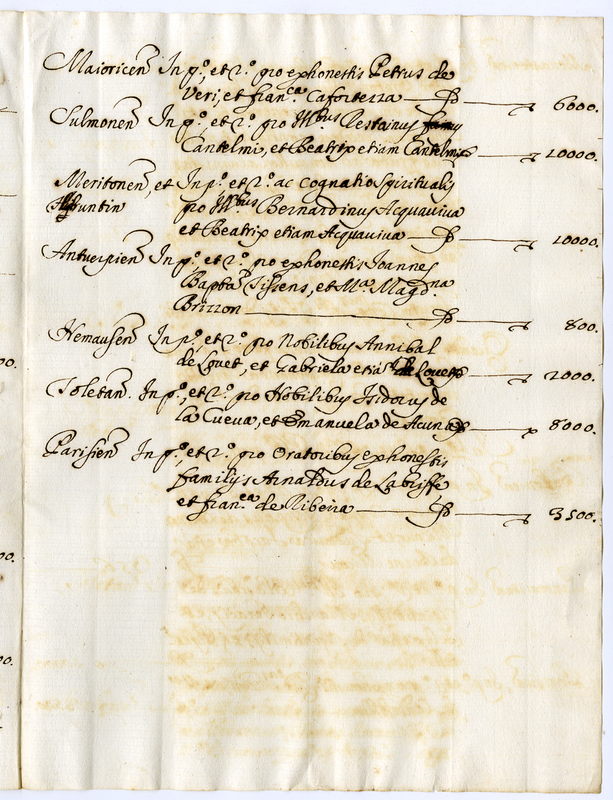 Maioricen̄ In p.º, et 2.º pro ex honestis Petrus de
Veri, et fran.ca Caforteza 6000.
Sulmonen̄ In p.º, et 2.º pro Ill.bus Restainus
Cantelmi, et Beatrix etiam Cantelmi 10000.
Neritonen̄, et In p.º et 2.º ac cognatio spiritualis
pro Ill.bus Bernardinus Acquaviva
et Beatrix etiam Acquaviva 10000.
Antuerpien̄ In p.º et 2.º pro ex honestis Joannes
Bapta Sissens, et M.a Magd.na
Brizzon 800.
Nemausen̄ In p.º, et 2.º pro Nobilibus Annibal
de Louet, et Gabriela etia de Louet 2000.
Toletan̄. In p.º, et 2.º pro Nobilibus Isidorus de
la Cueva, et Emanuela de Acuna 8000.
Parisien̄ In p.º, et 2.º pro Oratoribus ex honestis
familijs Arnaldus de Labriffe
et fran.ca de Ribeira 3500.
00.
00.
00.